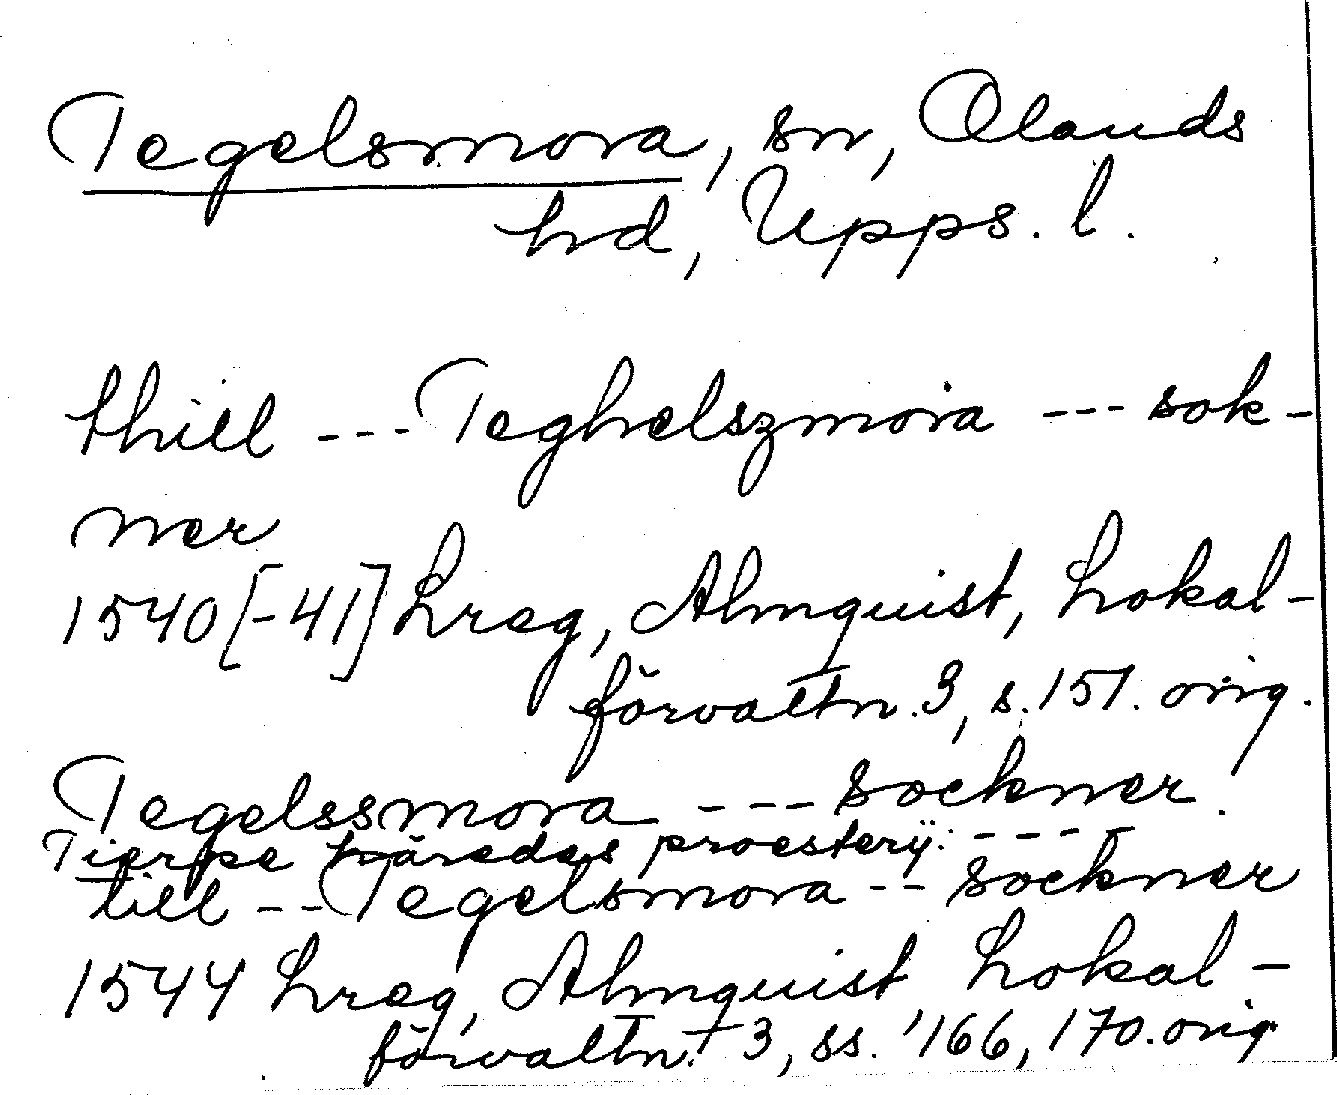 Tegelsmora, sn, Olands
hd, Upps. l.
thill --- Teghelszmora --- sok-
ner
1540[-41] Lreg, Almquist, Lokal-
förvaltn. 3, s. 151. orig.
Tegelssmora --- sockner.
Tierpe häredes proesterij: ----
till -- Tegelsmora -- sockner
1544 Lreg, Almquist Lokal-
förvaltn. 3, ss. 166, 170. orig